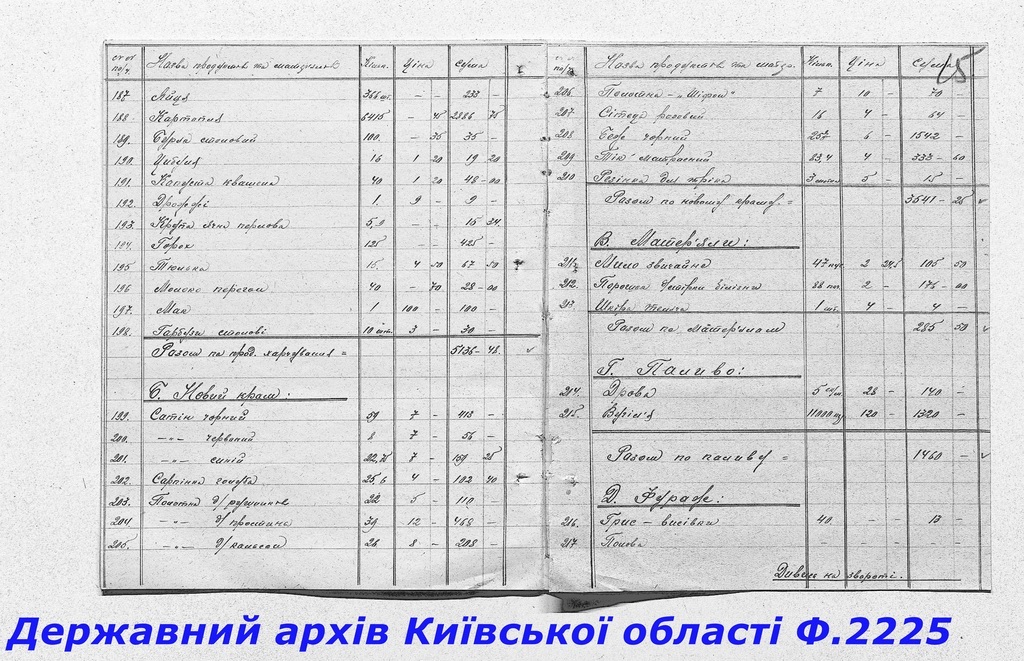 Назва продуктів та матеріялів Кільк. Ціна Сума
187. Яйця 366 шт. - - 233 -
188. Картопля 6415 - 45 2886 75
189. Буряк столовий 100. - 35 35 -
190. Цибуля 16 1 20 19 20
191. Капуста квашена 40 1 20 48 - 00
192. Дріжджі 1. 9 - 9 -
193. Крупа ячна перлова 5,9 15 34
194. Горох 125 - 425 -
195 Тюлька 15. 4 50 67 50
196 Молоко 40 - 70 28 - 00
197. Мак 1 100 - 100 -
198. столові 10 шт. 3 - 30 -
Разом по прод. харчування = 5136 - 48.
Б. Новий крам:
199. Сатін чорний 59 7 - 413 -
200. -"- червоний 8 7 - 56 -
201. -"- синій 22,75 7 - 159 25
202. Сарпінка 25,6 4 - 102 40
203. Полотна д/рушників 22 5 - 110 -
204 -"- д/простинь 39 12 - 468 -
205. -"- д/кальсон 26 8 - 208 -
Назва продуктів та матер. Кільк. Ціна Сума
15
206. Полотна - "Шіфон" 7 10 - 70 -
207. 16 4 - 64 -
208 чорний 257 6 - 1542 -
209 Тік матрасний 83,4 4 - 333 - 60
210 Резінка 5 - 15 -
Разом по новому краму = 3541 - 25
В. Матер'яли:
211. Мило звичайне 2 24,5 105 50
212. 88 2 - 176 - 00
213 1 шт. 4 - 4 -
Разом по матер'ялам 285 50
Г. Паливо:
214. Дрова 5 28 - 140 -
215. Вугілля 11000 120 - 1320 -
Разом по паливу = 1460 -
Д. Фураж:
216. Грис - висівки 40. - - 13 -
217 Полова
Дивись на звороті.
Державний архів Київської області Ф.2225